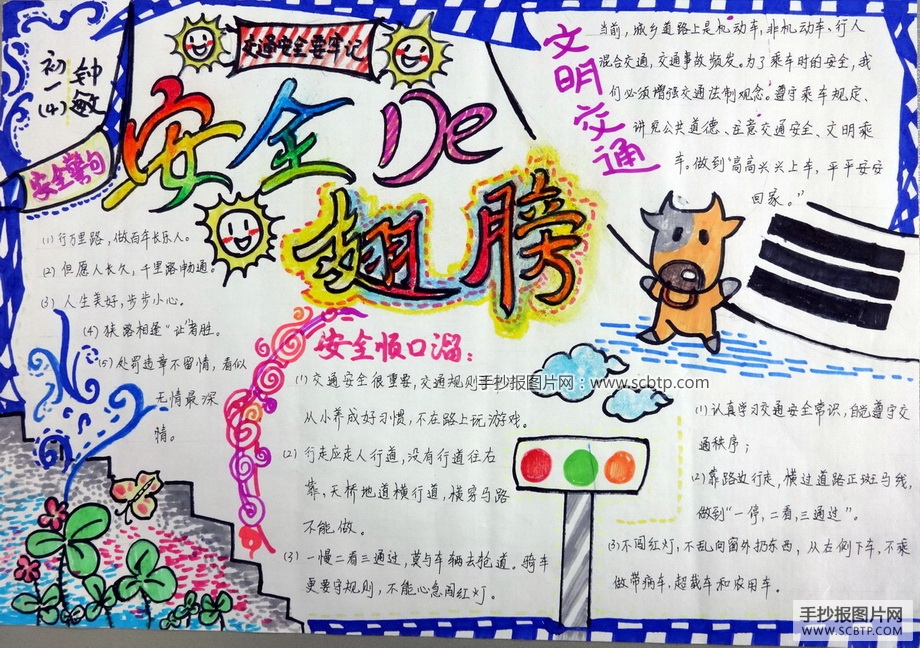 交通安全要牢记
初一(4)
钟敏
安全De
翅膀
安全警句
(1) 行万里路，做百年长乐人。
(2) 但愿人长久，千里路畅通。
(3) 人生美好，步步小心。
(4) 狭路相逢“让”者胜。
(5) 处罚违章不留情，看似
无情最深
情。
文明交通
当前，城乡道路上是机动车，非机动车、行人
混合交通，交通事故频发。为了乘车时的安全，我
们必须增强交通法制观念。遵守乘车规定、
讲见公共道德、注意交通安全、文明乘
车。做到“高高兴兴上车，平平安安
回家。”
安全顺口溜：
(1) 交通安全很重要，交通规则
从小养成好习惯，不在路上玩游戏。
(2) 行走应走人行道，没有行道往右
靠，天桥地道横行道，横穿马路
不能做。
(3) 一慢二看三通过，莫与车辆去抢道。骑车
更要守规则，不能心急闯红灯。
手抄报图片网：www.scbtp.com
(1) 认真学习交通安全常识，自觉遵守交
通秩序；
(2) 靠路边行走，横过道路正斑马线，
做到“一停，二看，三通过”。
(3) 不闯红灯，不乱向窗外扔东西，从右侧下车，不乘
做带病车，超载车和农用车。
手抄报图片网
WWW.SCBTP.COM